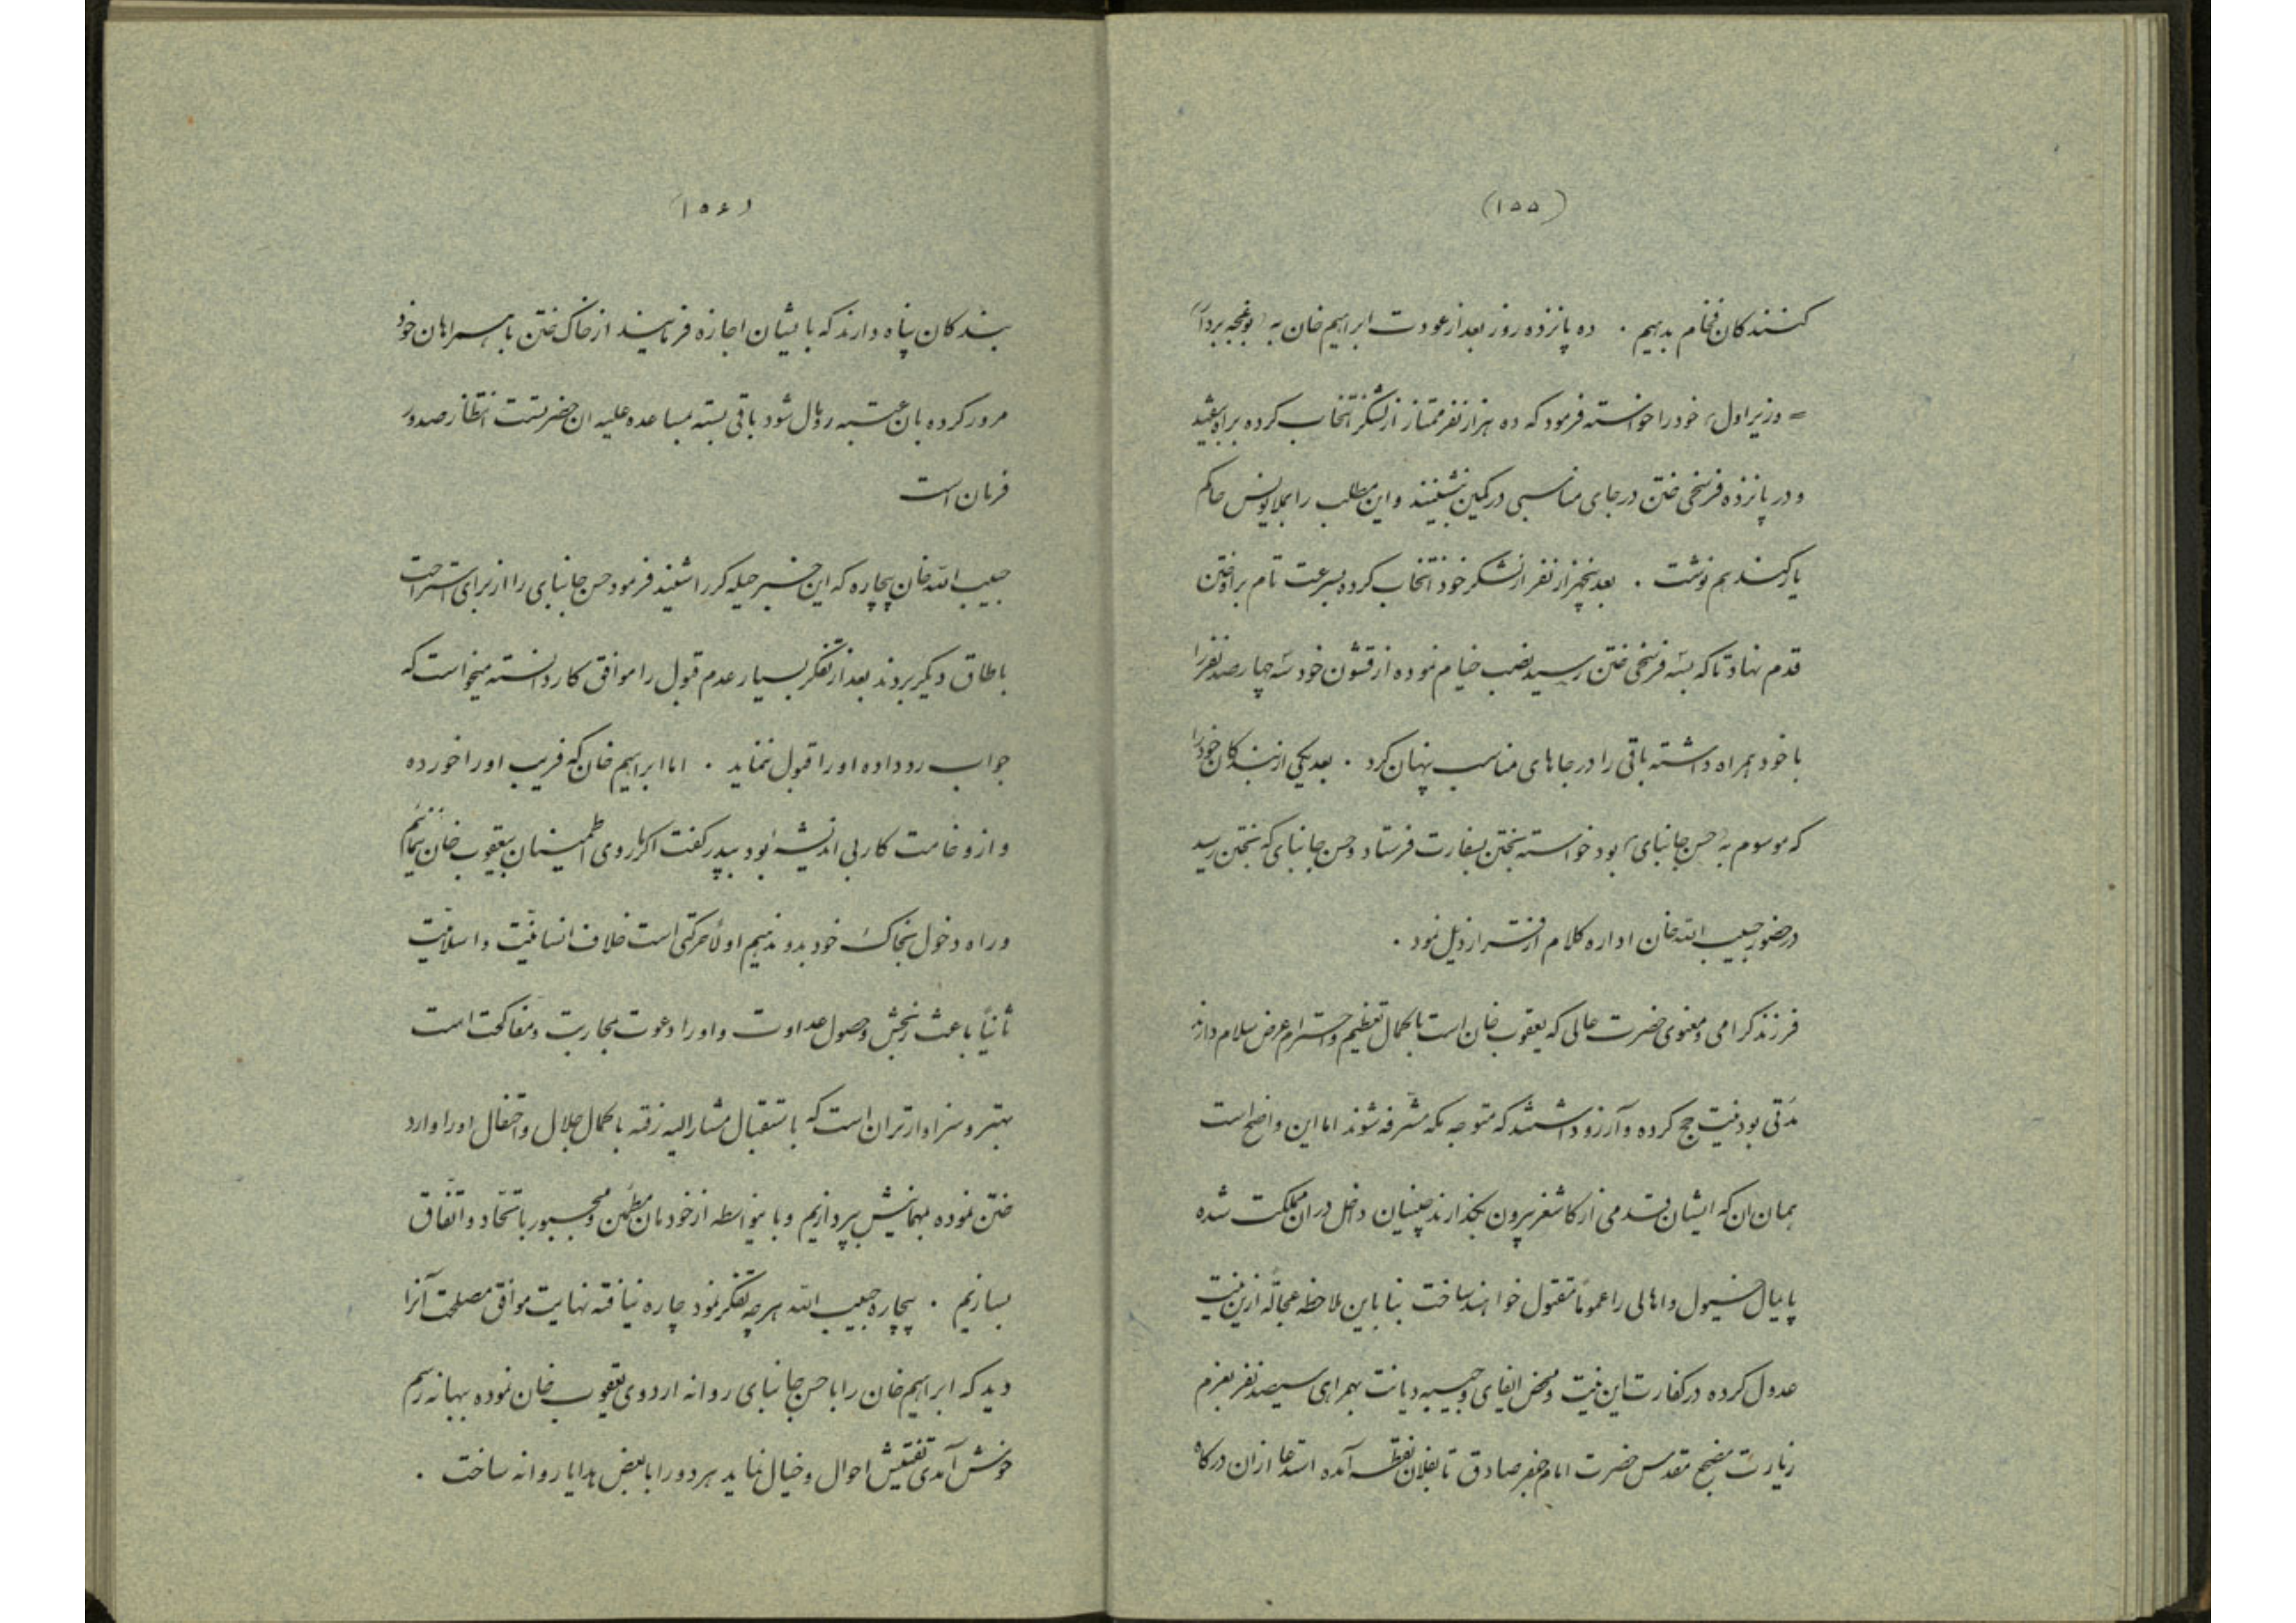 (۱۵۵)
کنندکان فخام بدهیم . ده پانزده روز بعد از عودت ابراهیم خان به (بوغجه بردار)
= وزیر اول) خود را خواسته فرمود که ده هزار نفر ممتاز از لشکر انتخاب کرده براه بیفتید
و در پانزده فرسخی ختن در جای مناسبی در کمین بنشینند و این مطلب را بملا یونس حاکم
یارکند هم نوشت . بعد پنجهزار نفر از لشکر خود انتخاب کرده بسرعت تام براه ختن
قدم نهاد تا که بسه فرسخی ختن رسید نصب خیام نموده از قشون خود سه چهار صد نفر را
با خود همراه داشته باقی را در جاهای مناسب پنهان کرد . بعد یکی از بندکان خود را
که موسوم به (حسن جانبای) بود خواسته بختن بسفارت فرستاد و حسن جانبای که بختن رسید
در حضور حبیب الله خان اداره کلام از قرار ذیل نمود .
فرزند کرامی و معنوی حضرت عالی که یعقوب خان است با کمال تعظیم و احترام عرض سلام دارند
مدتی بود نیت حج کرده و آرزو داشتند که متوجه مکه مشرفه شوند اما این واضح است
همان ان که ایشان قدمی از کاشغر بیرون بکذارند چینیان داخل در ان مملکت شده
پایمال خیول و اهالی را عموماً مقتول خواهند ساخت بنا باین ملاحظه عجالةً ازین نیت
عدول کرده در کفارت این نیت و محض ایفای وجیبه دیانت بهمراهی سیصد نفر بعزم
زیارت مضجع مقدس حضرت امام جعفر صادق تا بفلان نقطه آمده استدعا از ان درکاه
(۱۵۶)
بندکان پناه دارند که بایشان اجازه فرمایند از خاک ختن با همراهان خود
مرور کرده بان عتبه روبمال شود باقی بسته بمساعده علیه ان حضرتست انتظار صدور
فرمان است
حبیب الله خان بیچاره که این خبر حیله کر را شنید فرمود حسن جانبای را از برای استراحت
باطاق دیکر بردند بعد از تفکر بسیار عدم قبول را موافق کار دانسته میخواست که
جواب رد داده او را قبول ننماید . اما ابراهیم خان که فریب او را خورده
و از وخامت کار بی اندیشه بود بپدر کفت اکر ما روی اطمینان بیعقوب خان ننمائیم
و راه دخول بخاک خود بدو ندهیم اولاً حرکتی است خلاف انسانیت و اسلامیت
ثانیاً باعث رنجش و حصول عداوت و او را دعوت بمحاربت و مفاکحت است
بهتر و سزاوارتر ان است که باستقبال مشارالیه رفته با کمال جلال و احتفال او را وارد
ختن نموده بمهمانیش بپردازیم و باینواسطه از خودمان مطمئن و مجبور باتحاد و اتفاق
بسازیم . بیچاره حبیب الله هر چه تفکر نمود چاره نیافته نهایت موافق مصلحت آنرا
دید که ابراهیم خان را با حسن جانبای روانه اردوی یعقوب خان نموده ببهانه رسم
خوش آمدی تفتیش احوال و خیال نماید هر دو را با بعض هدایا روانه ساخت .